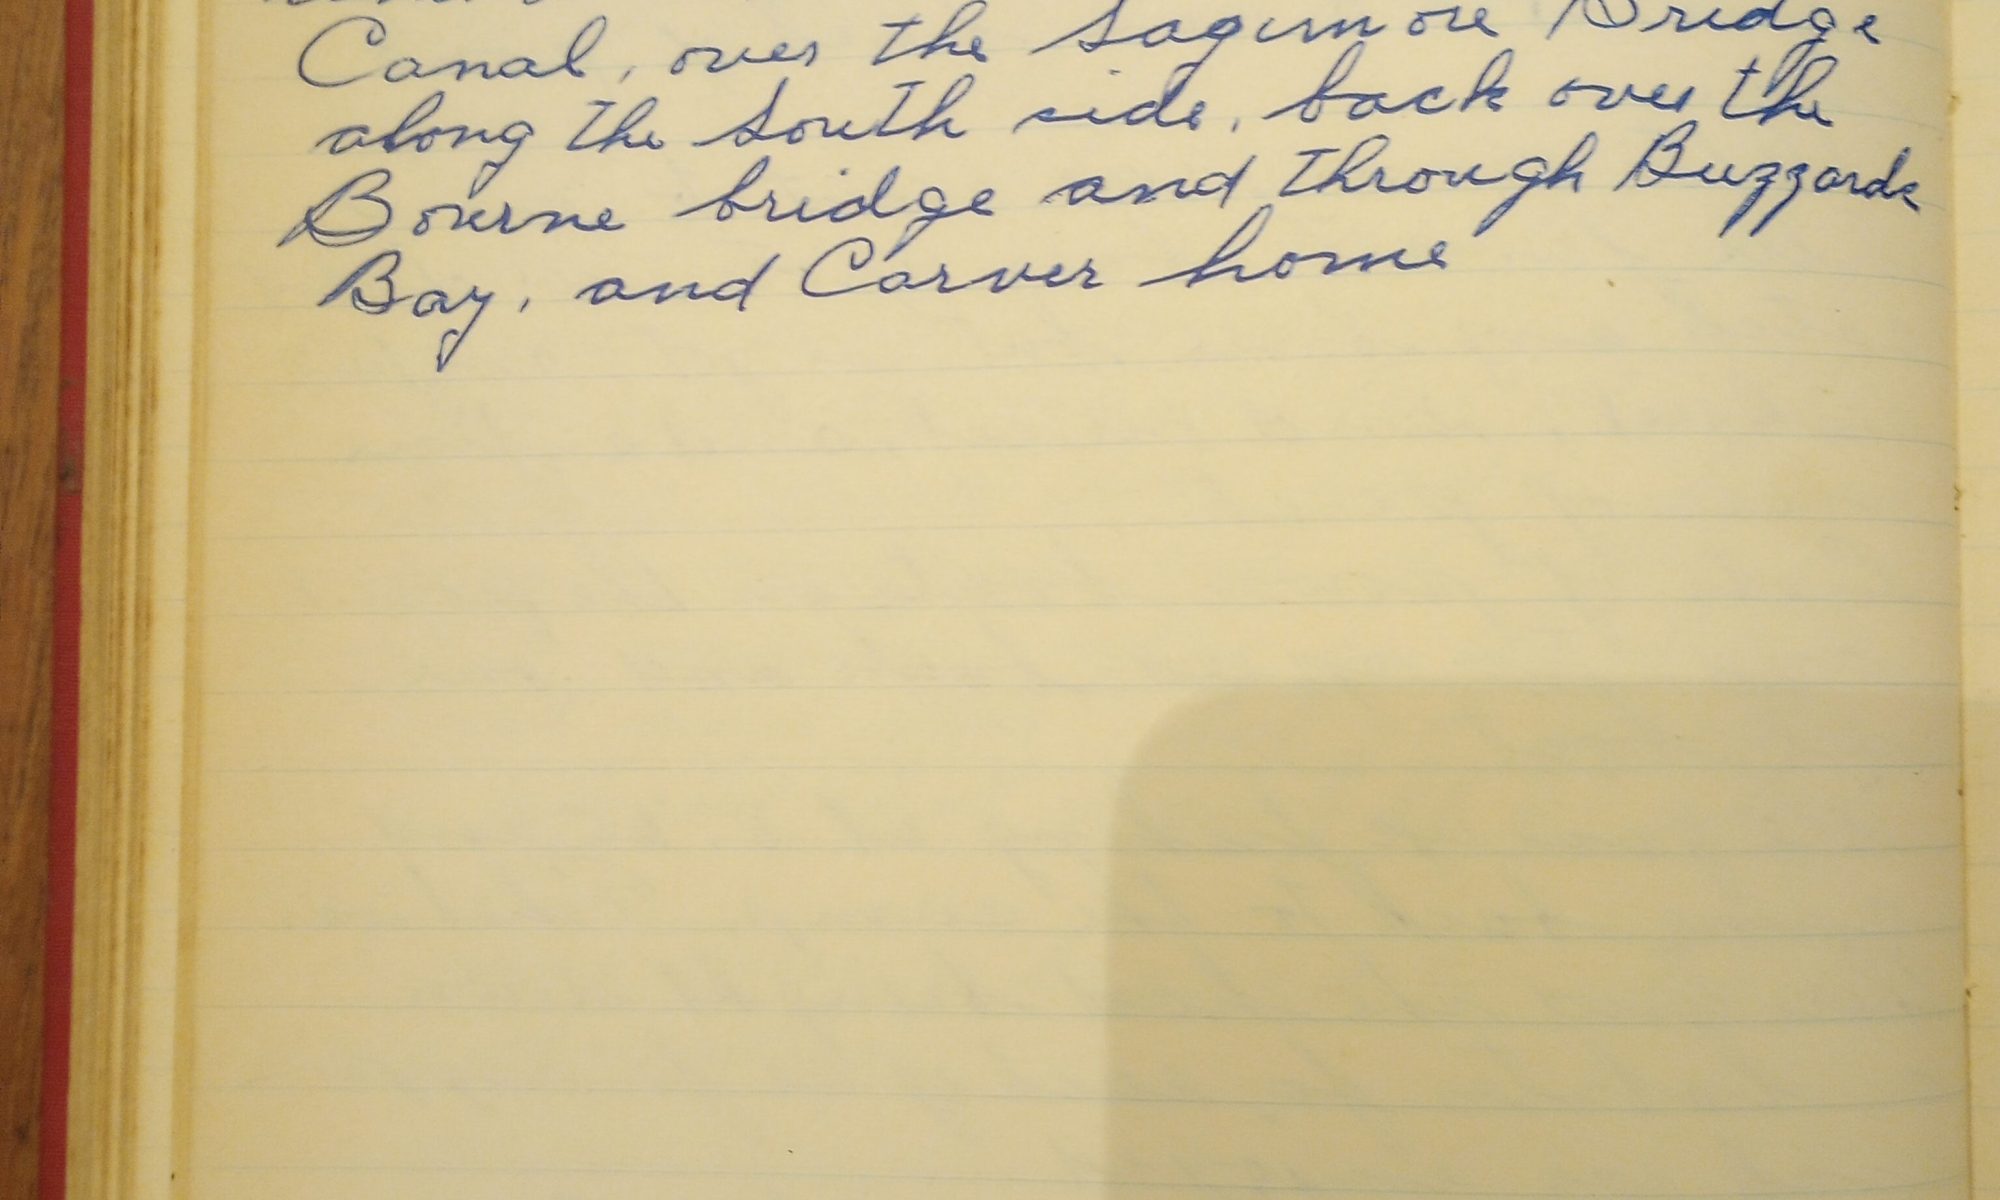 Canal, over the Sagimore Bridge
along the South side, back over the
Bourne bridge and through Buzzards
Bay, and Carver home